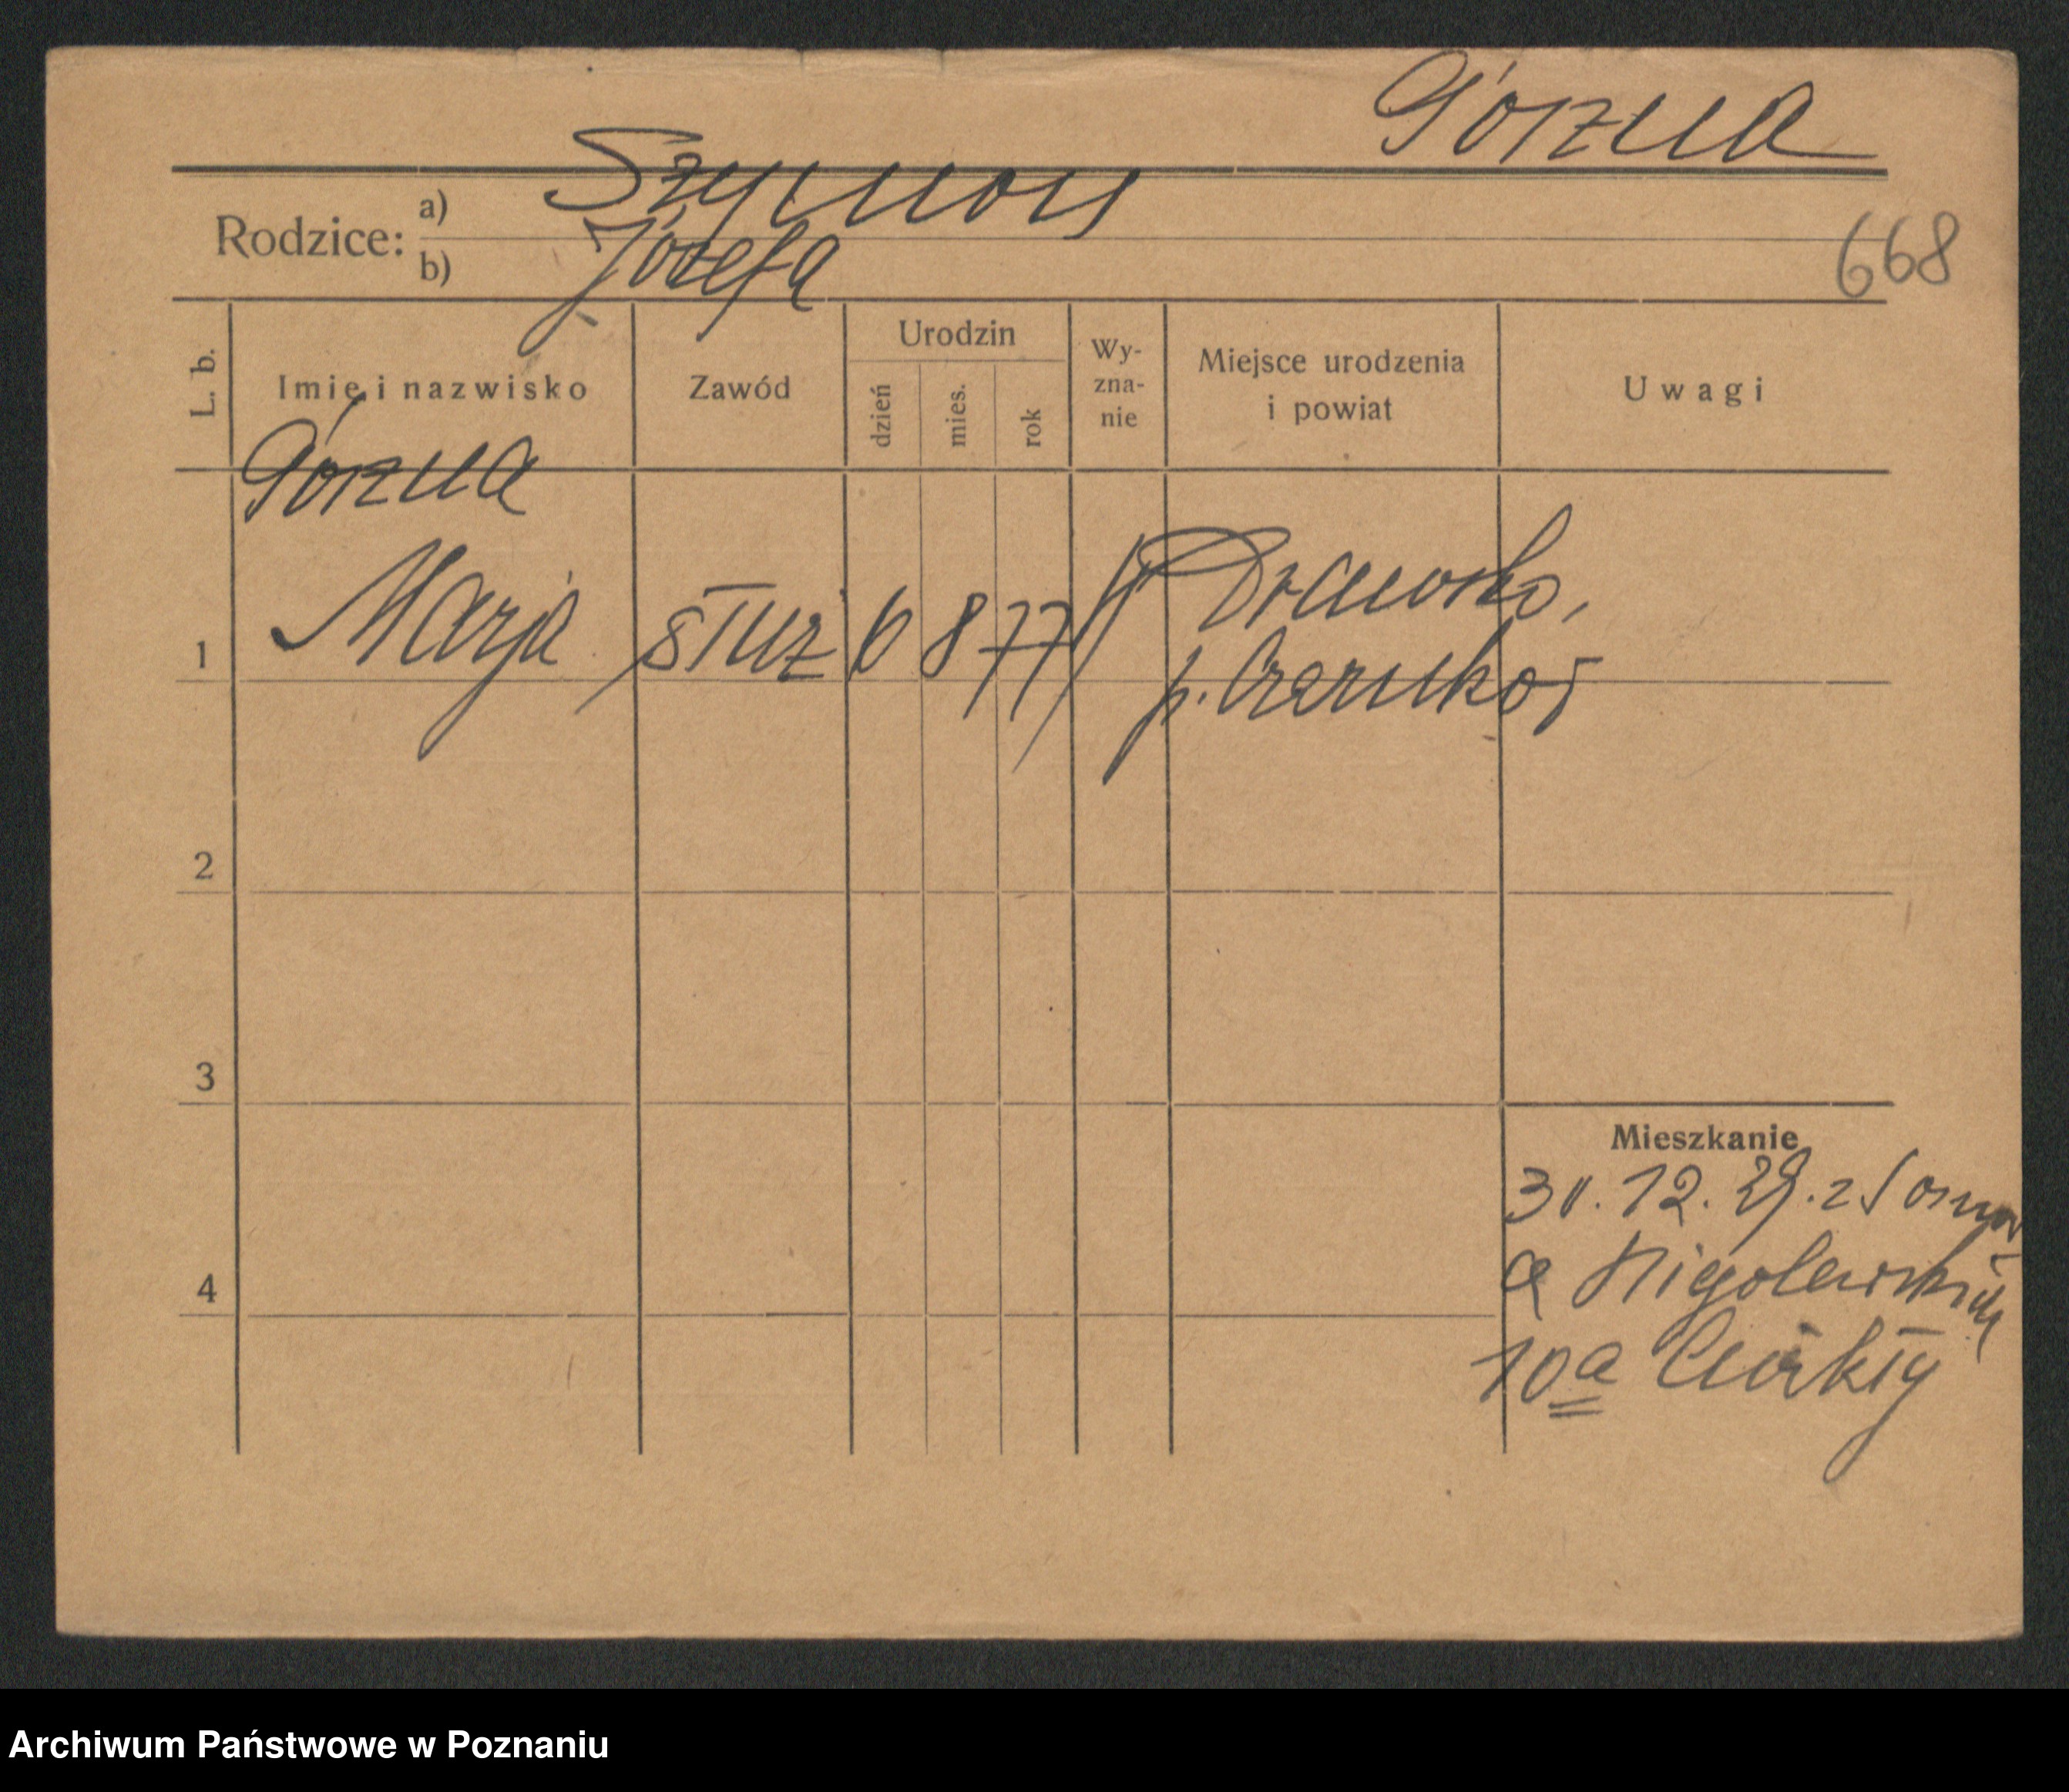 Górzna
Rodzice: a) Szymon
b) Józefa
668
L. b.
Imię i nazwisko
Zawód
Urodzin
dzień
mies.
rok
Wy-
zna-
nie
Miejsce urodzenia
i powiat
Uwagi
Górzna
1 Marja służ 6 8 77 Drawsko,
p. Czarnków
2
3
4
Mieszkanie
30. 12. 29. z
a Niegolewskich
10a
Archiwum Państwowe w Poznaniu